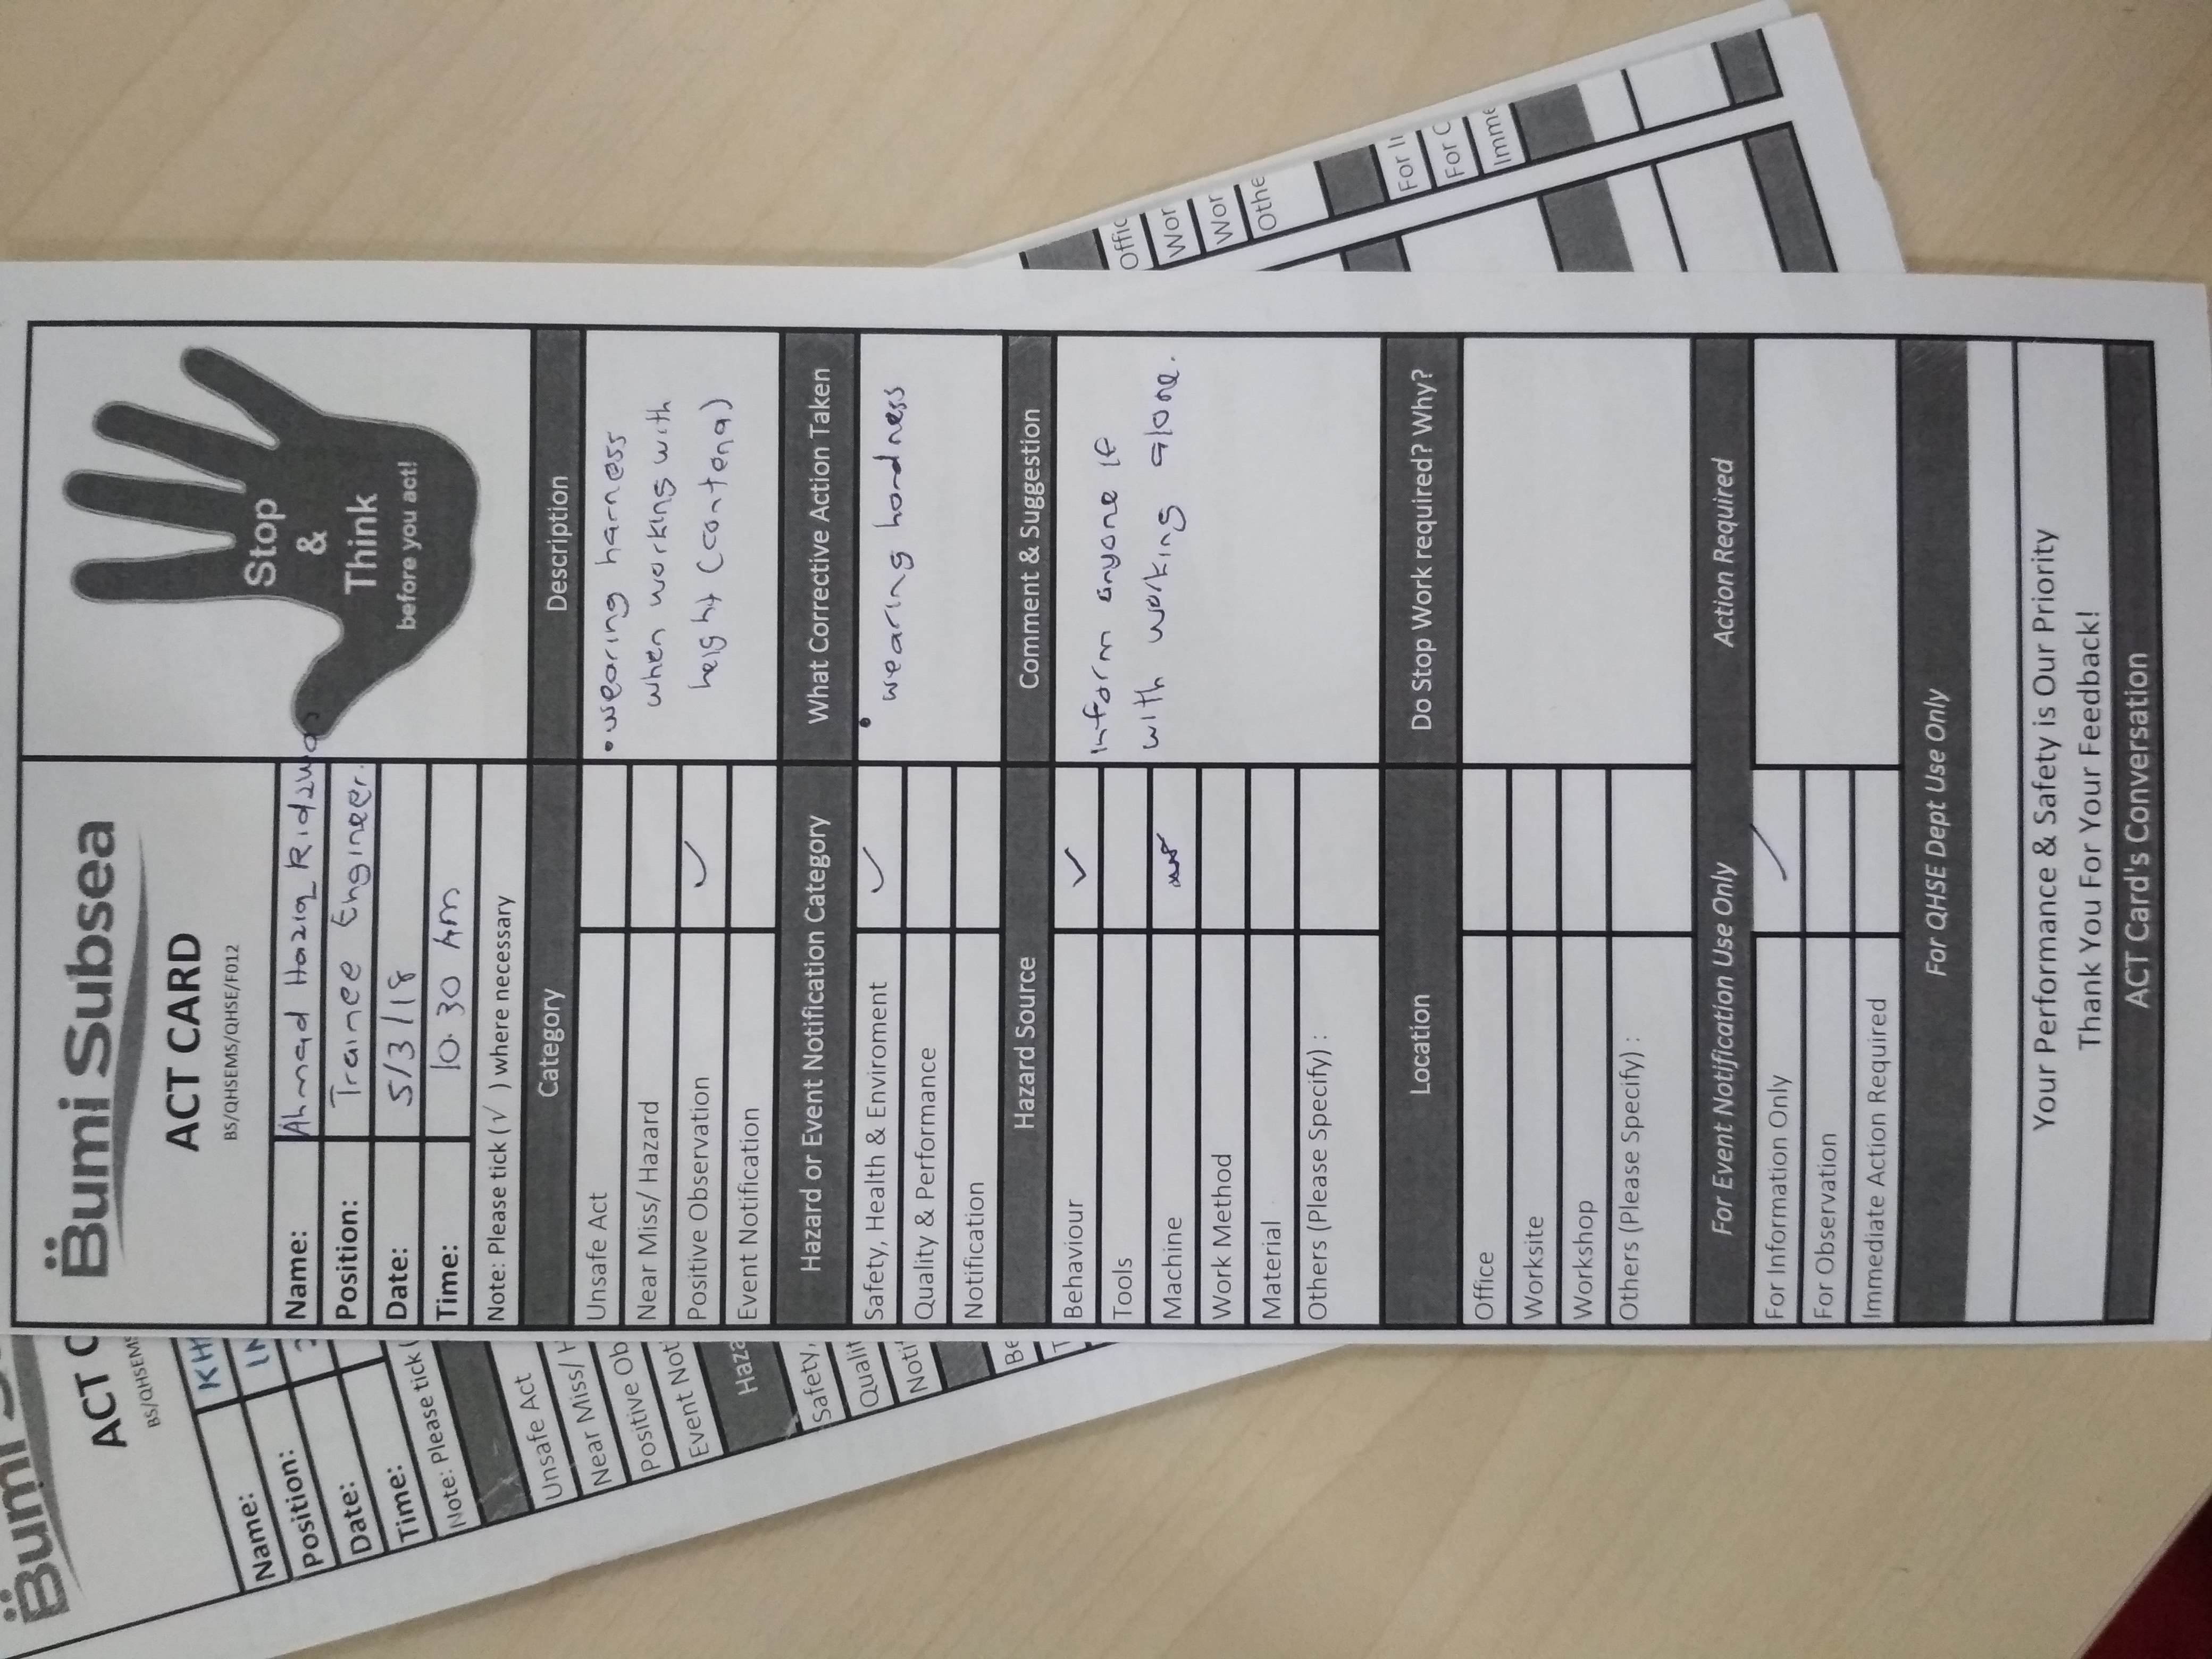 Bumi Subsea
ACT CARD
BS/QHSEMS/QHSE/F012
Stop
&
Think
before you act!
Name: Ahmad Haziq Ridzwa
Position: Trainee Engineer.
Date: 5/3/18
Time: 10.30 AM
Note: Please tick ( √ ) where necessary
Category Description
Unsafe Act
Near Miss/ Hazard
Positive Observation ✓
Event Notification
• wearing harness
when working with
height (contena)
Hazard or Event Notification Category What Corrective Action Taken
Safety, Health & Enviroment ✓
Quality & Performance
Notification
• wearing hordness
Hazard Source Comment & Suggestion
Behaviour ✓
Tools
Machine
Work Method
Material
Others (Please Specify) :
Inform anyone if
with working alone.
Location Do Stop Work required? Why?
Office
Worksite
Workshop
Others (Please Specify) :
For Event Notification Use Only Action Required
For Information Only
For Observation
Immediate Action Required
For QHSE Dept Use Only
Your Performance & Safety is Our Priority
Thank You For Your Feedback!
ACT Card's Conversation
Bumi S
ACT C
BS/QHSEMS
Name: KH
Position: IN
Date:
Time:
Note: Please tick (
Unsafe Act
Near Miss/ H
Positive Ob
Event Not
Haza
Safety,
Qualit
Notif
Be
T
Offic
Wor
Wor
Othe
For I
For O
Imme